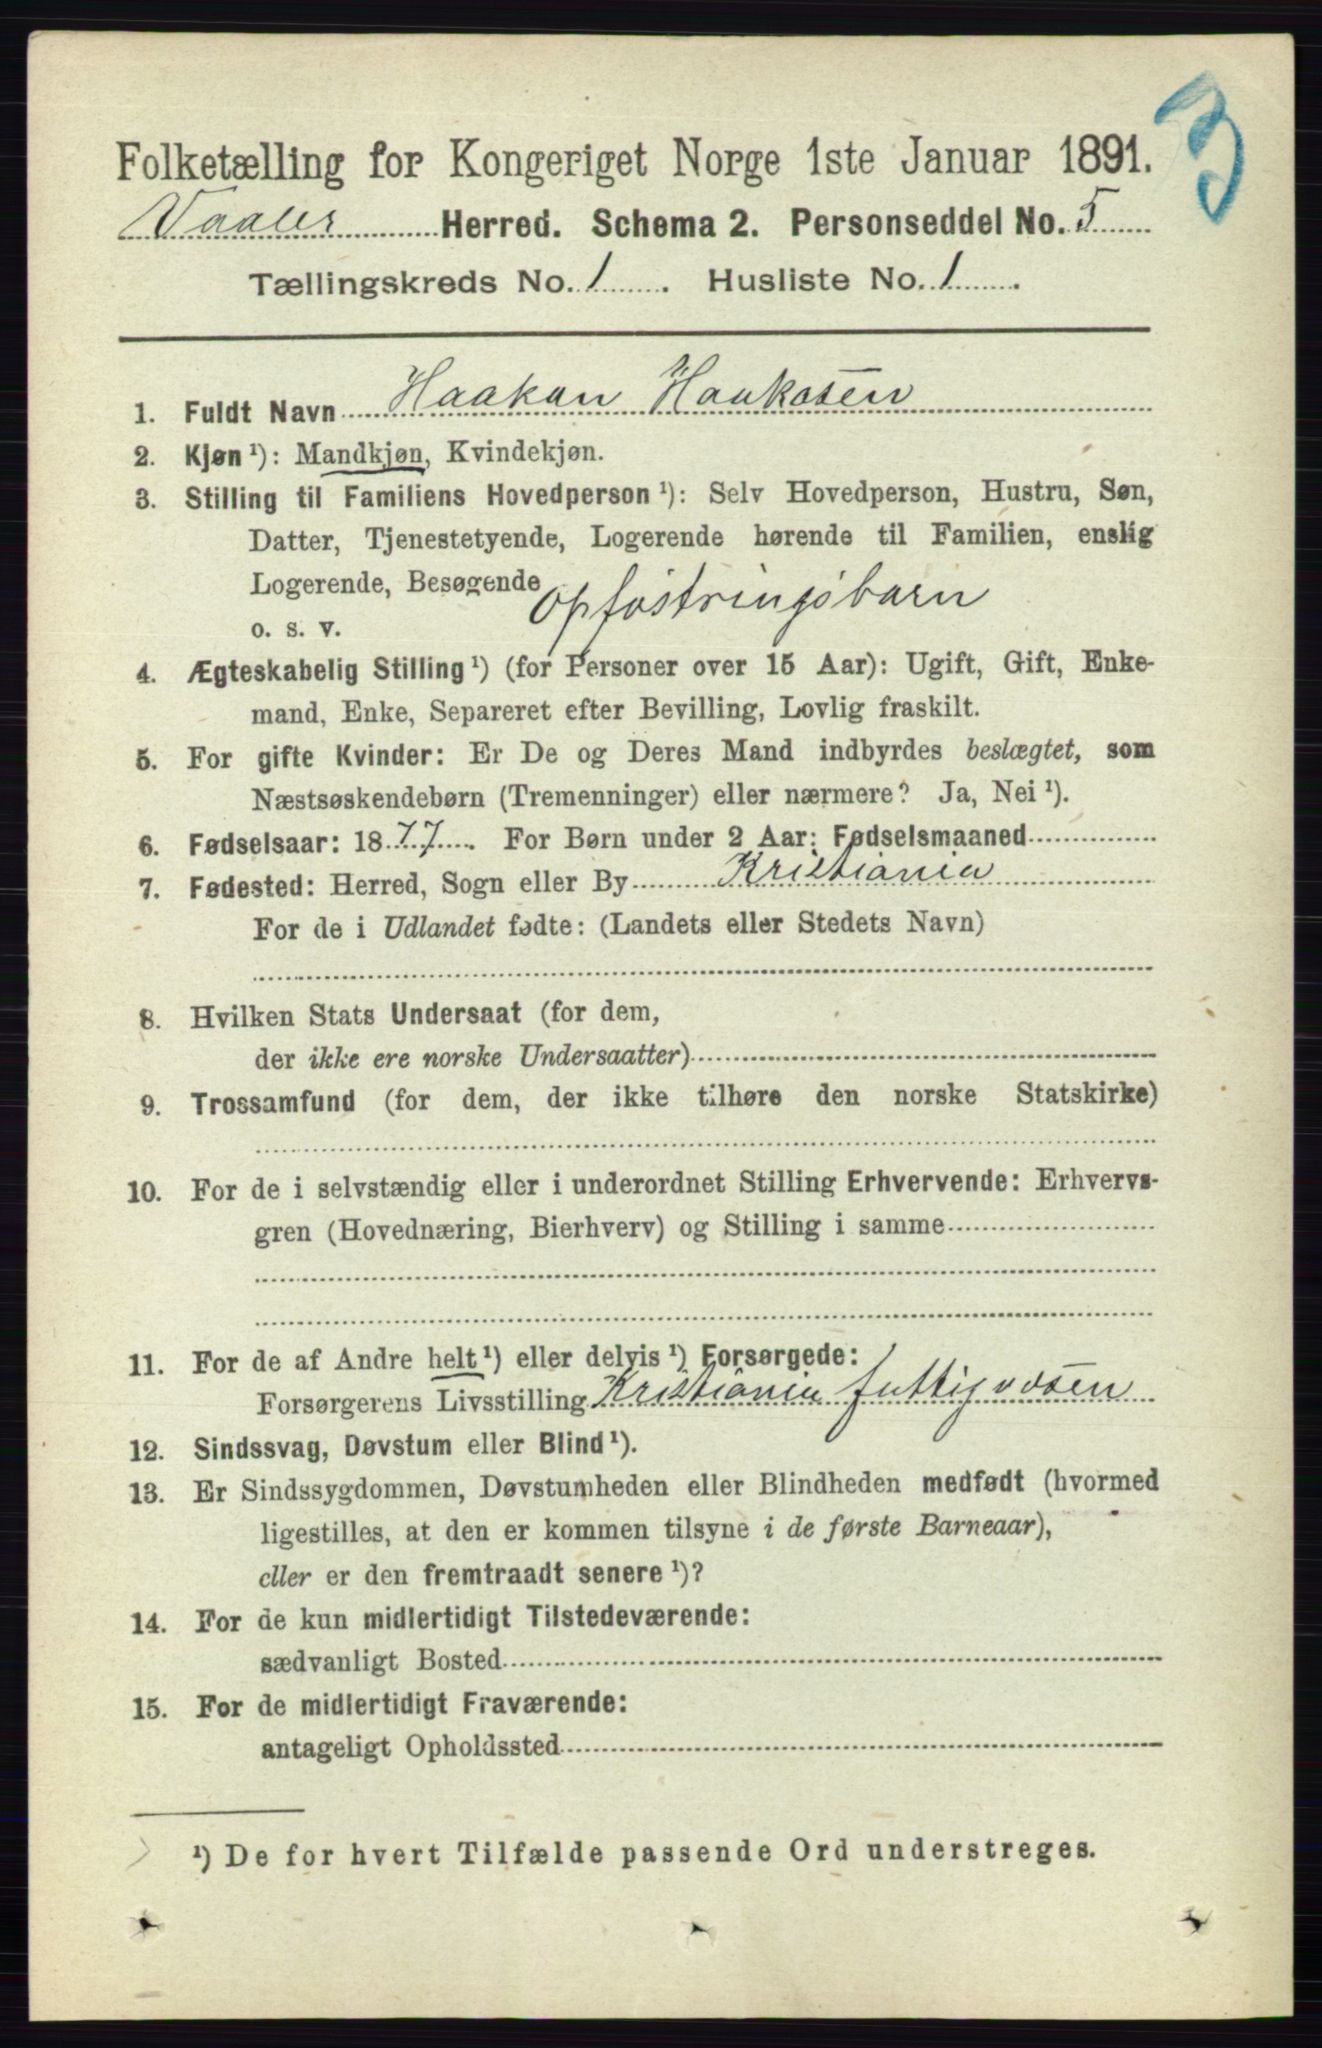 3
Folketælling for Kongeriget Norge 1ste Januar 1891.
Vaaler Herred. Schema 2. Personseddel No. 5
Tællingskreds No. 1. Husliste No. 1.
1. Fuldt Navn Haakon Haakosen
2. Kjøn ¹): Mandkjøn, Kvindekjøn.
3. Stilling til Familiens Hovedperson ¹): Selv Hovedperson, Hustru, Søn,
Datter, Tjenestetyende, Logerende hørende til Familien, enslig
Logerende, Besøgende
o. s. v. Opfostringsbarn
4. Ægteskabelig Stilling ¹) (for Personer over 15 Aar): Ugift, Gift, Enke-
mand, Enke, Separeret efter Bevilling, Lovlig fraskilt.
5. For gifte Kvinder: Er De og Deres Mand indbyrdes beslægtet, som
Næstsøskendebørn (Tremenninger) eller nærmere? Ja, Nei ¹).
6. Fødselsaar: 1877. For Børn under 2 Aar: Fødselsmaaned
7. Fødested: Herred, Sogn eller By Kristiania
For de i Udlandet fødte: (Landets eller Stedets Navn)
8. Hvilken Stats Undersaat (for dem,
der ikke ere norske Undersaatter)
9. Trossamfund (for dem, der ikke tilhøre den norske Statskirke)
10. For de i selvstændig eller i underordnet Stilling Erhvervende: Erhvervs-
gren (Hovednæring, Bierhverv) og Stilling i samme
11. For de af Andre helt ¹) eller delvis ¹) Forsørgede:
Forsørgerens Livsstilling Kristiania
12. Sindssvag, Døvstum eller Blind ¹).
13. Er Sindssygdommen, Døvstumheden eller Blindheden medfødt (hvormed
ligestilles, at den er kommen tilsyne i de første Barneaar),
eller er den fremtraadt senere ¹)?
14. For de kun midlertidigt Tilstedeværende:
sædvanligt Bosted
15. For de midlertidigt Fraværende:
antageligt Opholdssted
¹) De for hvert Tilfælde passende Ord understreges.